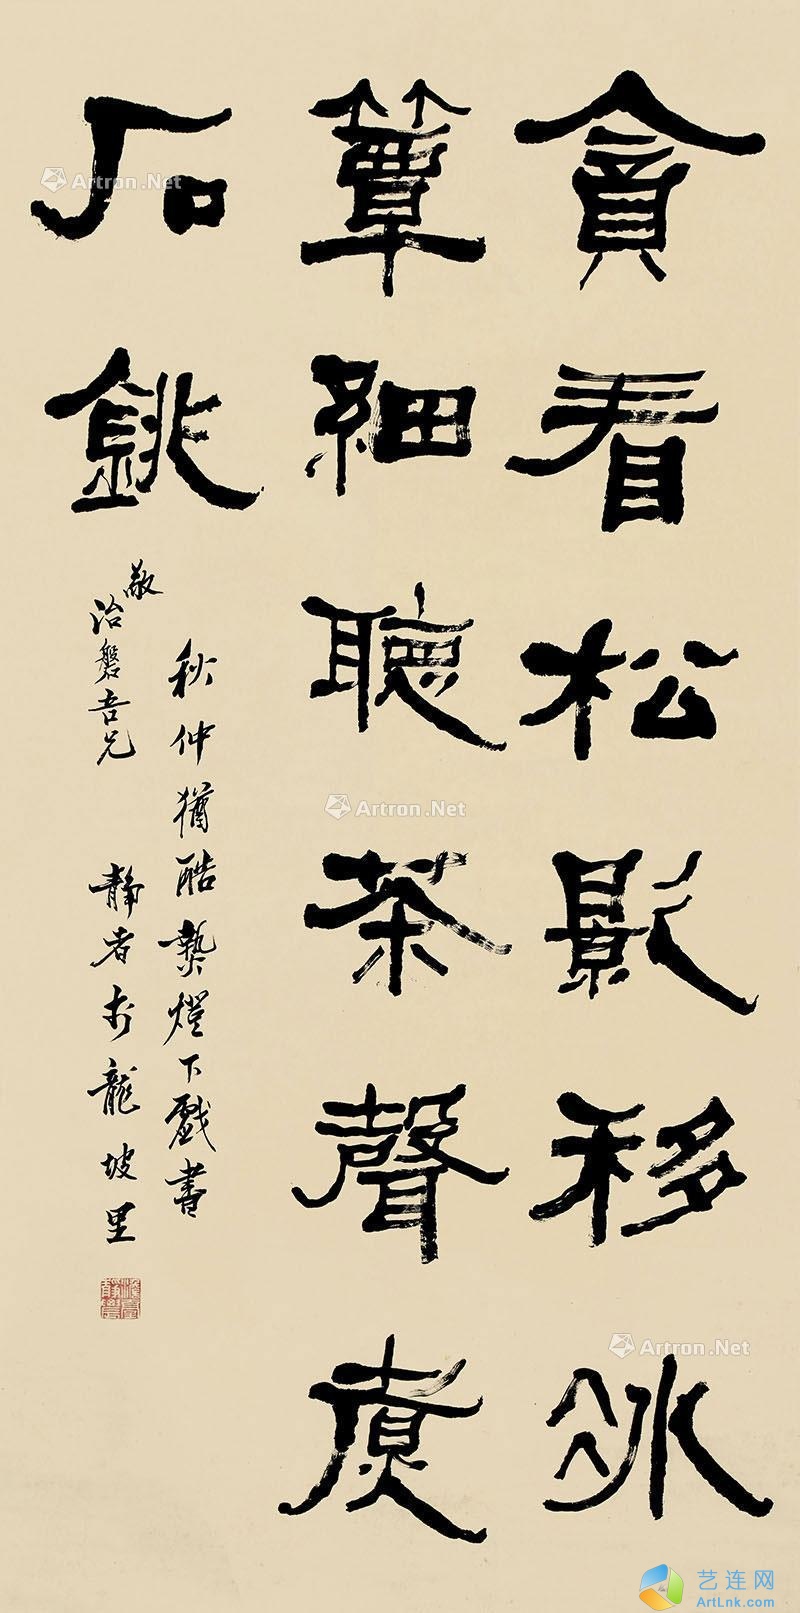 貪看松影移冰
簟細聽茶聲煮
石銚
秋仲猶酷爇燈下戲書
敬治磐吾兄 靜者於龍坡里
Artron.Net
Artron.Net
Artron.Net
艺连网
ArtLnk.com